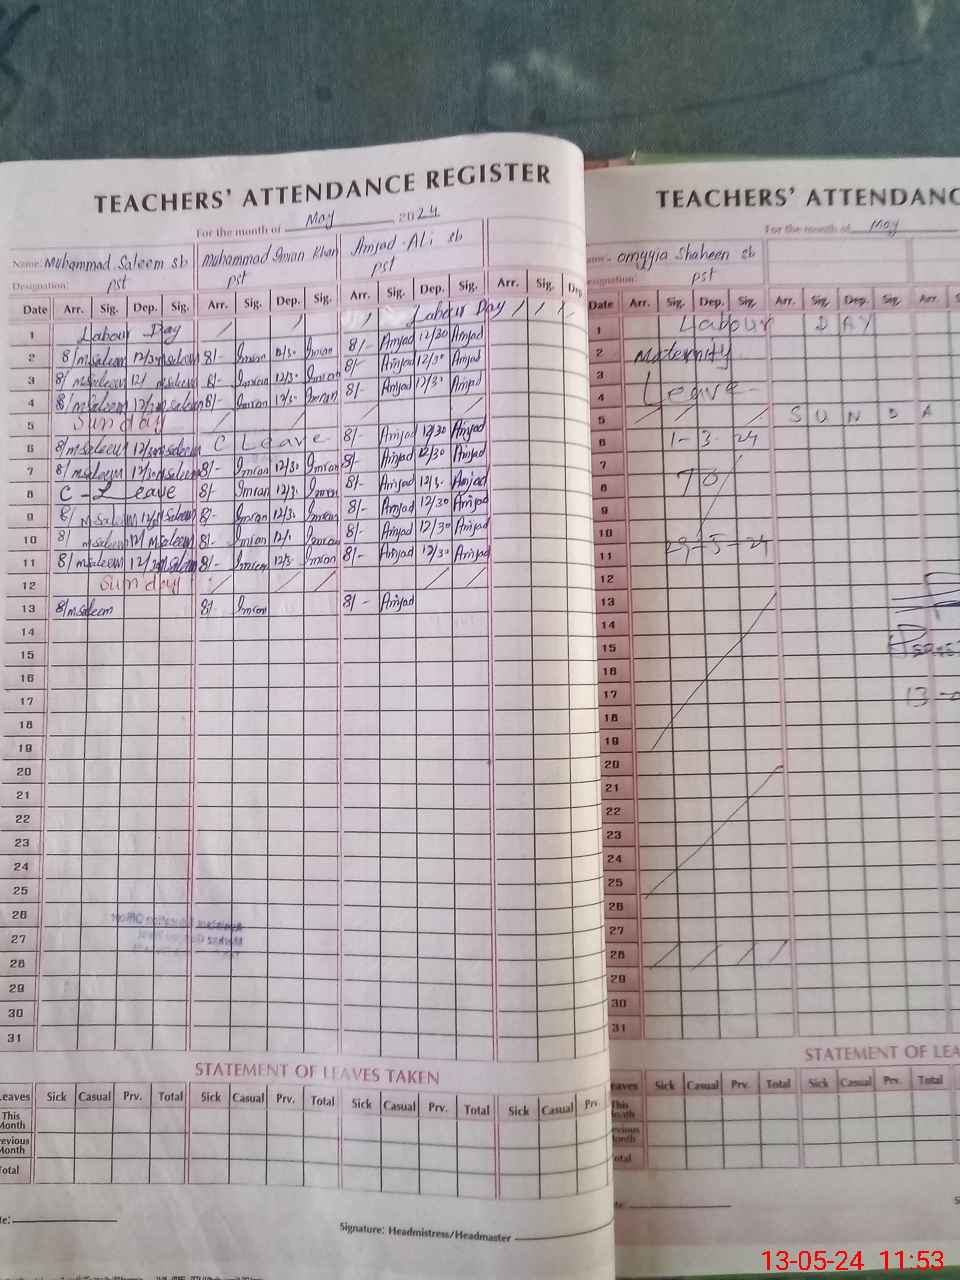 TEACHERS' ATTENDANCE REGISTER
For the month of May 2024
Name: Muhammad Saleem sb Muhammad Imran Khan Amjad Ali sb
Designation: pst pst pst
Date Arr. Sig. Dep. Sig. Arr. Sig. Dep. Sig. Arr. Sig. Dep. Sig. Arr. Sig. Dep.
1 Labour Day Labour Day
2 8/ m saleem 12/30 m saleem 8/- Imran 12/30 Imran 8/- Amjad 12/30 Amjad
3 8/ m saleem 12/ m saleem 8/- Imran 12/30 Imran 8/- Amjad 12/30 Amjad
4 8/ m saleem 12/ m saleem 8/- Imran 12/30 Imran 8/- Amjad 12/30 Amjad
5 Sunday
6 8/ m saleem 12/30 m saleem C Leave 8/- Amjad 12/30 Amjad
7 8/ m saleem 12/30 m saleem 8/- Imran 12/30 Imran 8/- Amjad 12/30 Amjad
8 C-Leave 8/- Imran 12/30 Imran 8/- Amjad 12/30 Amjad
9 8/ m saleem 12/ m saleem 8/- Imran 12/30 Imran 8/- Amjad 12/30 Amjad
10 8/ m saleem 12/ m saleem 8/- Imran 12/ Imran 8/- Amjad 12/30 Amjad
11 8/ m saleem 12/ m saleem 8/- Imran 12/30 Imran 8/- Amjad 12/30 Amjad
12 Sunday
13 8/ m saleem 8/- Imran 8/- Amjad
14
15
16
17
18
19
20
21
22
23
24
25
26
27
28
29
30
31
STATEMENT OF LEAVES TAKEN
Leaves Sick Casual Prv. Total Sick Casual Prv. Total Sick Casual Prv. Total Sick Casual Prv.
This Month
Previous Month
Total
Signature: Headmistress/Headmaster
TEACHERS' ATTENDANC
For the month of May
Shaheen sb
Designation: pst
Date Arr. Sig. Dep. Sig. Arr. Sig. Dep. Sig. Arr.
1 Labour DAY
2 Maternity
3
4 Leave
5 SUNDA
6 1-3-24
7
8 TO
9
10
11 29-5-24
12
13
14
15
16
17 13
18
19
20
21
22
23
24
25
26
27
28
29
30
31
STATEMENT OF LEA
Leaves Sick Casual Prv. Total Sick Casual Prv. Total
This Month
Previous Month
Total
13-05-24 11:53